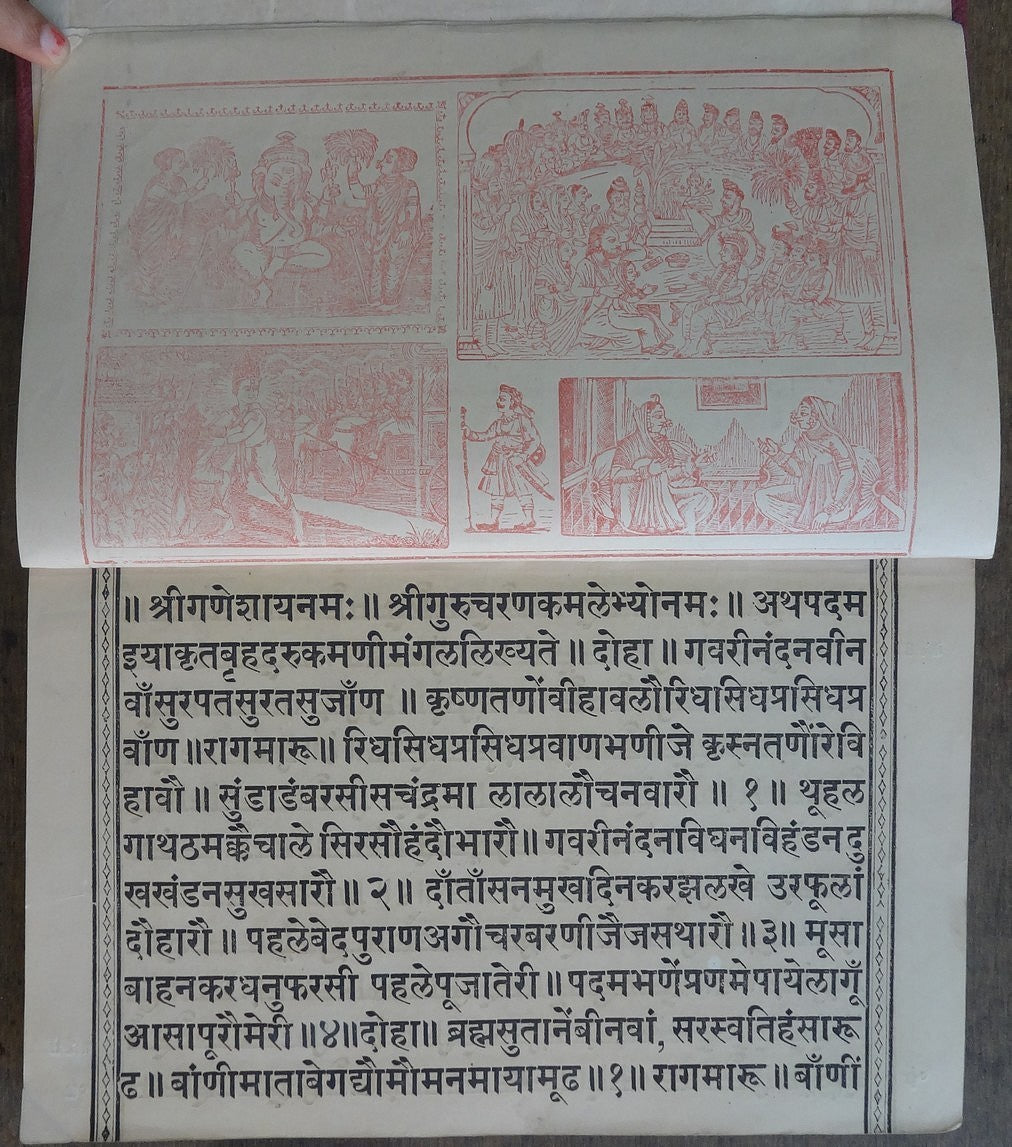 ॥ श्रीगणेशायनमः ॥ श्रीगुरुचरणकमलेभ्योनमः ॥ अथपदम
इयाकृतबृहदरुकमणीमंगललिख्यते ॥ दोहा ॥ गवरीनंदनवीन
वाँसुरपतसुरतसुजाँण ॥ कृष्णतणोंवीहावलौरिधासिधप्रसिधप्र
वाँण ॥ रागमारू ॥ रिधसिधप्रसिधप्रवाणभणीजे कृस्नतणौंरेवि
हावौ ॥ सुंडाडंबरसीसचंद्रमा लालालौचनवारौ ॥ १ ॥ थूहल
गाथठमक्कैचाले सिरसौहंदौभारौ ॥ गवरीनंदनाविघनविहंडनदु
खखंडनसुखसारौ ॥ २ ॥ दाँताँसनमुखदिनकरझलखे उरफूलां
दौहारौ ॥ पहलेबेदपुराणअगौचरबरणीजैजसथारौ ॥ ३ ॥ मूसा
बाहनकरधनुफरसी पहलेपूजातेरी ॥ पदमभणेंप्रणमेपायेलागूँ
आसापूरौमेरी ॥ ४ ॥ दोहा ॥ ब्रह्मसुतानेंबीनवां, सरस्वतिहंसारू
ढ ॥ बांणीमाताबेगद्यौमौमनमायामूढ ॥ १ ॥ रागमारू ॥ बाँणीं